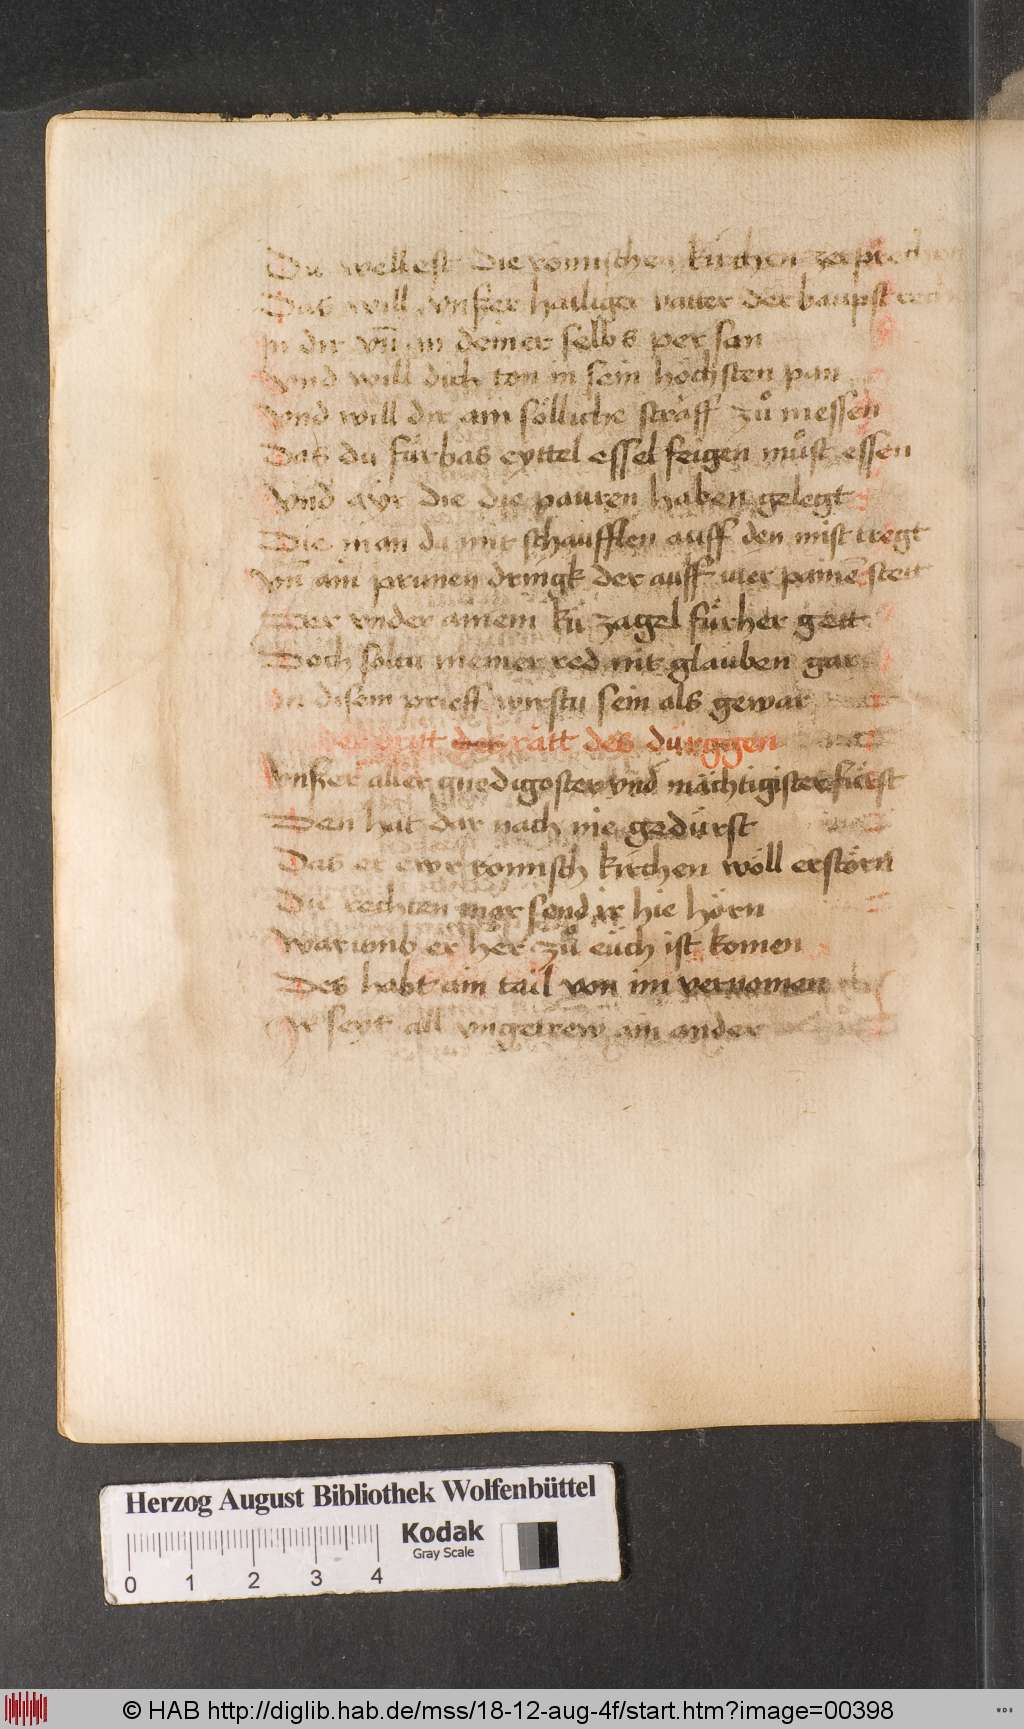 Du wellest die römischen kirchen zerprechen
Das will vnßer hailiger vatter der baupst rechen
In dir vn̄ an deiner selbs person
Vnd will dich ton in sein höchsten pan
Vnd will dir ain sölliche straff zů messen
Das du fürbas eyttel essel feigen můst essen
Vnd ayr die die pauren haben gelegt
Die man da mit schaufflen auff den mist tregt
Vn̄ ain prunen dringk der auff vier painē stett
Der vnder ainem kü zagel fürher gett
Doch soltu meiner red nit glauben gar
In disem prieff wirstu sein als gewar
der rätt des dürggen
Vnßer aller gnedigoster vnd mächtigister fürst
Den hat dar nach nie gedürst
Das er ewr römisch kirchen wöll erstörn
Die rechten mär send ir hie hörn
Warumb er her zů eüch ist komen
Des habt ain tail von im vernomen
Ir seyt all vngetrew ain ander
Herzog August Bibliothek Wolfenbüttel
Kodak
Gray Scale
0 1 2 3 4
© HAB http://diglib.hab.de/mss/18-12-aug-4f/start.htm?image=00398